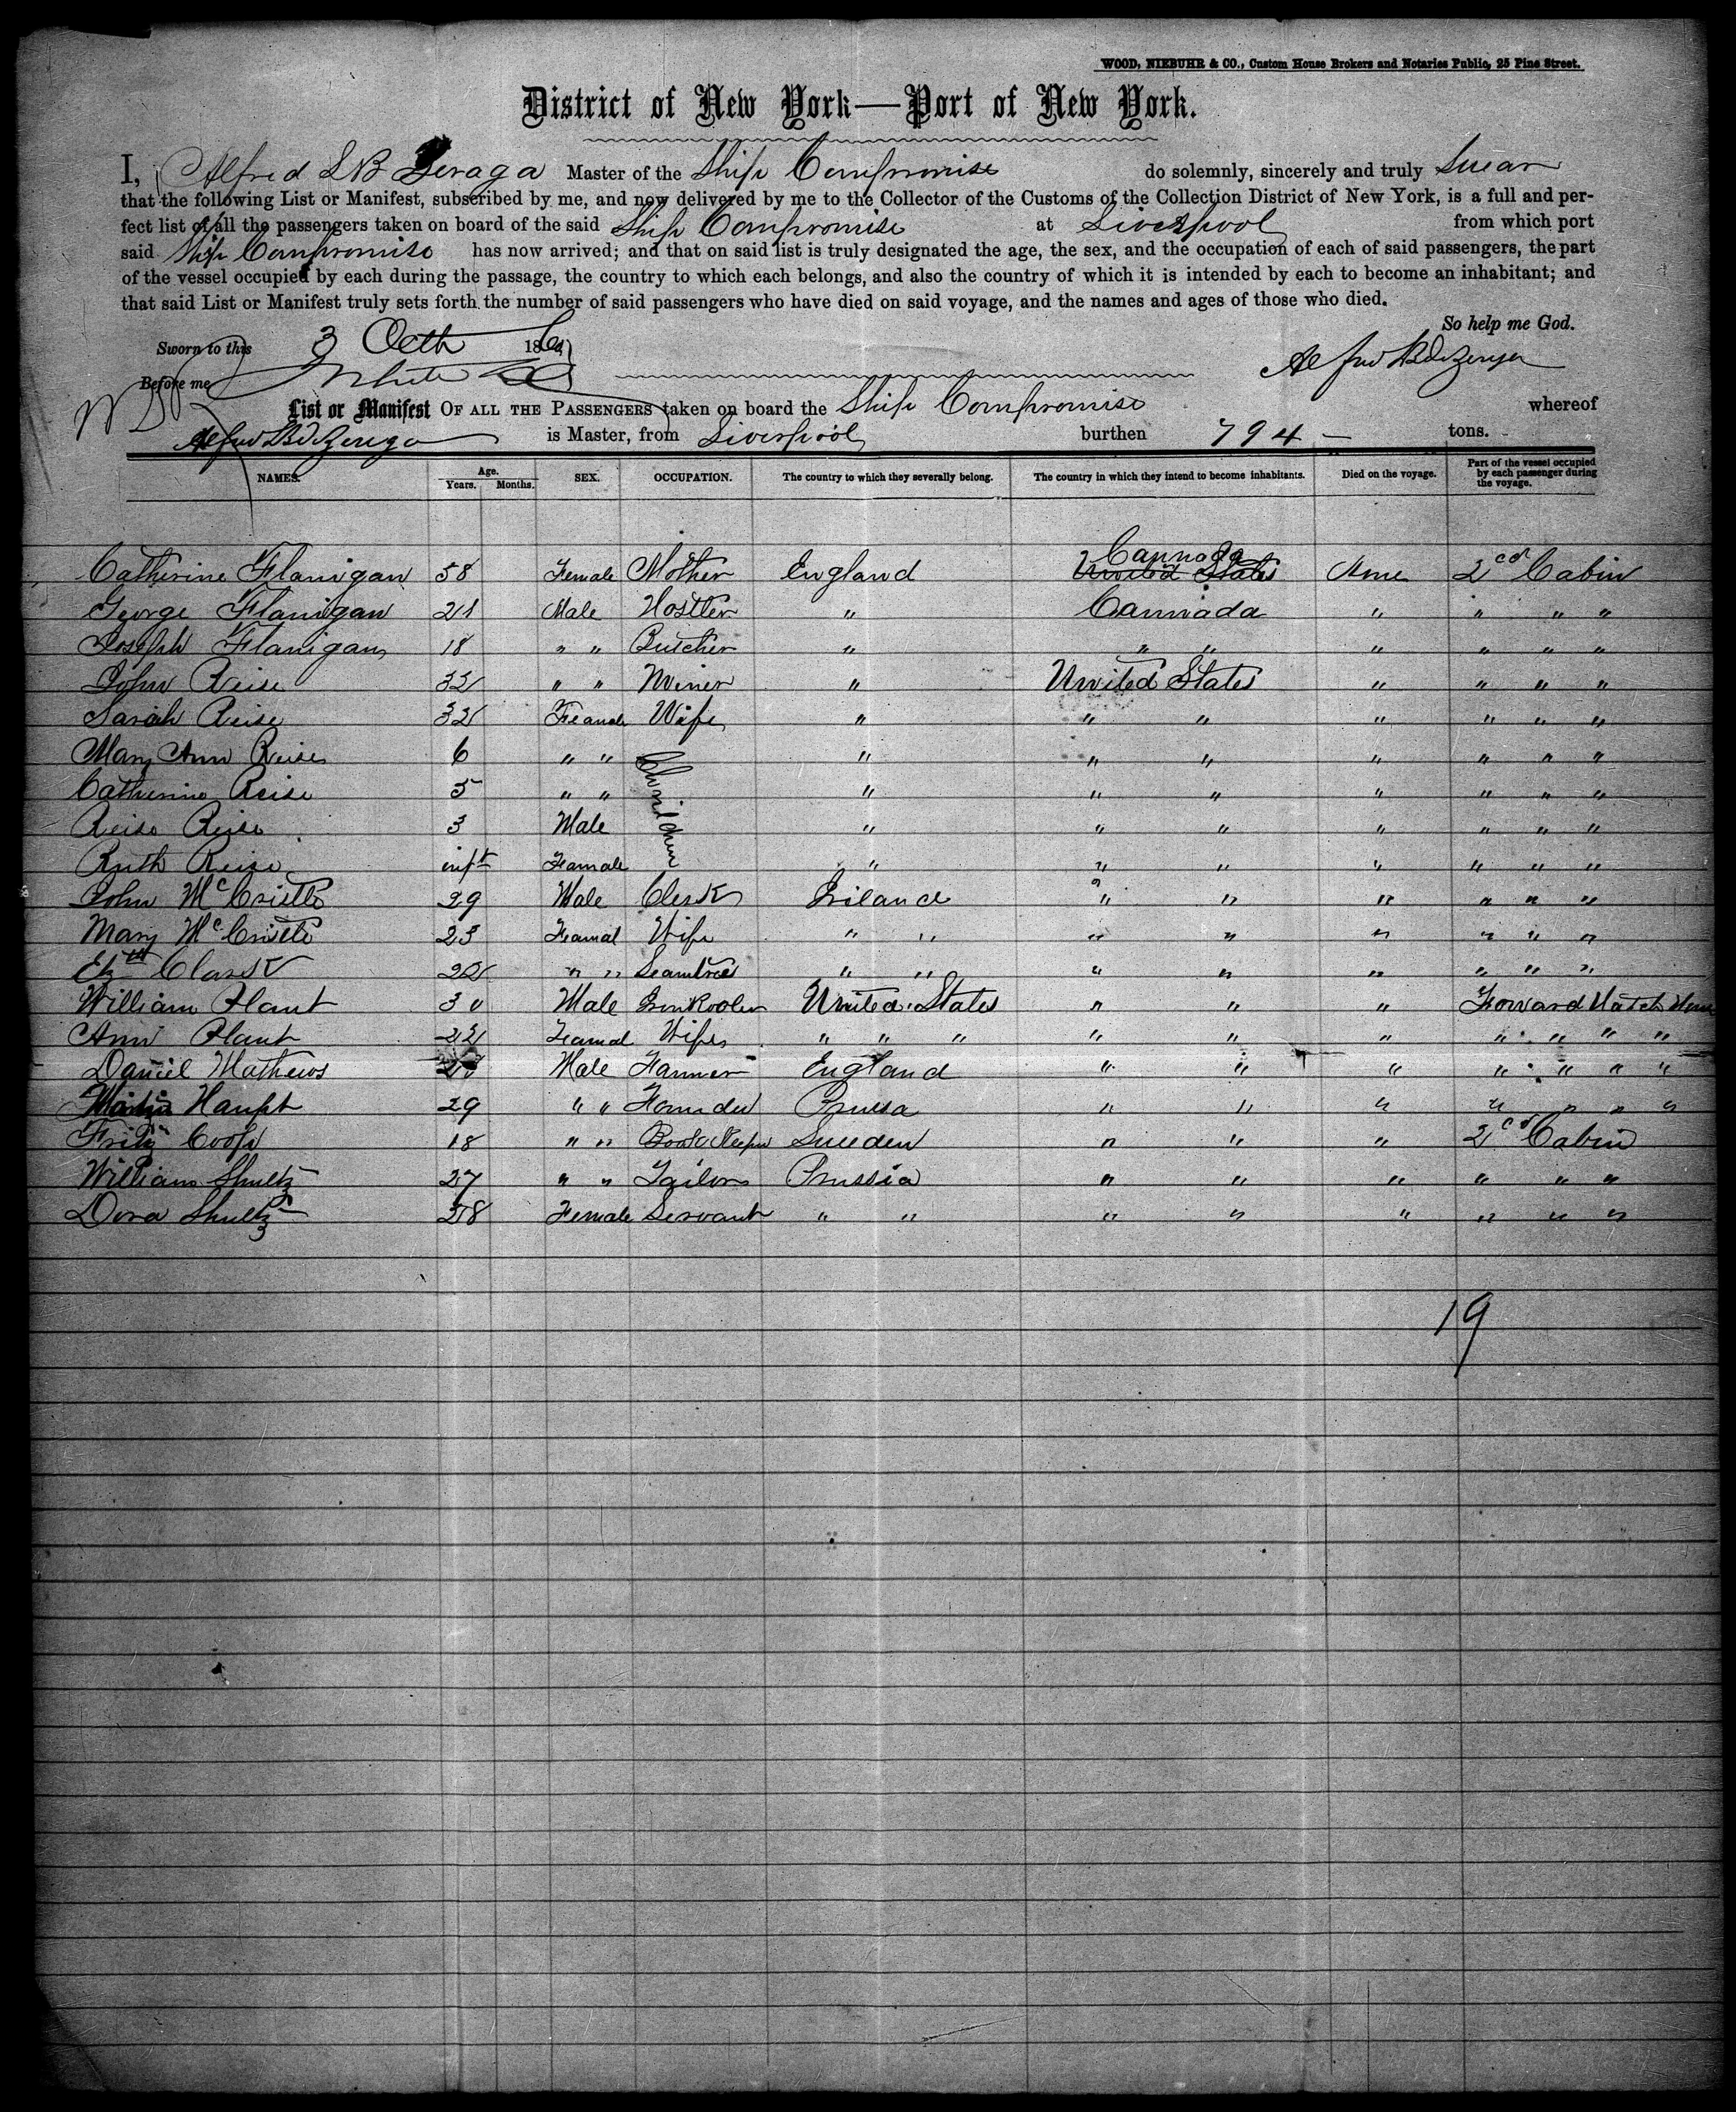 WOOD, NIEBUHR & CO., Custom House Brokers and Notaries Public, 25 Pine Street.
District of New York—Port of New York.
I, Alfred Master of the Ship Compromise do solemnly, sincerely and truly Swear
that the following List or Manifest, subscribed by me, and now delivered by me to the Collector of the Customs of the Collection District of New York, is a full and per-
fect list of all the passengers taken on board of the said Ship Compromise at Liverpool from which port
said Ship Compromise has now arrived; and that on said list is truly designated the age, the sex, and the occupation of each of said passengers, the part
of the vessel occupied by each during the passage, the country to which each belongs, and also the country of which it is intended by each to become an inhabitant; and
that said List or Manifest truly sets forth the number of said passengers who have died on said voyage, and the names and ages of those who died.
So help me God.
Sworn to this 3 Octh 186
Before me White
List or Manifest OF ALL THE PASSENGERS taken on board the Ship Compromise whereof
is Master, from Liverpool burthen 794 - tons.
NAMES. Age. Years. Months. SEX. OCCUPATION. The country to which they severally belong. The country in which they intend to become inhabitants. Died on the voyage. Part of the vessel occupied by each passenger during the voyage.
Cannada
Catherine Flanigan 58 Female Mother England United States None 2cd Cabin
George Flanigan 21 Male Hostler " Cannada " " " "
Joseph Flanigan 18 " " Butcher " " " " " " "
John Reise 32 " " Miner " United States " " " "
Sarah Reise 32 Feamale Wife " " " " " " "
Mary Ann Reise 6 " " Children " " " " " " "
Catherine Reise 5 " " " " " " " " "
Reise Reise 3 Male " " " " " " "
Ruth Reise inft Feamale " " " " " " "
John McCristle 29 Male Clerk " " " " " "
Mary McCristle 23 Feamal Wife " " " " " " " "
Elzth Clark 22 " " " " " " " " " "
William Plant 30 Male United States " " " Forward Hatch House
Ann Plant 22 Feamal Wife " " " " " " " " " "
Daniel Mathews Male Farmer England " " " " " " "
Haupt 29 " " Prussa " " " " " " "
Fritz Coop 18 " " Book Keeper Sweden " " " 2cd Cabin
William Shultz 27 " " Tailor Prussia " " " " " "
Dora Shultz 28 Female Servant " " " " " " " "
19